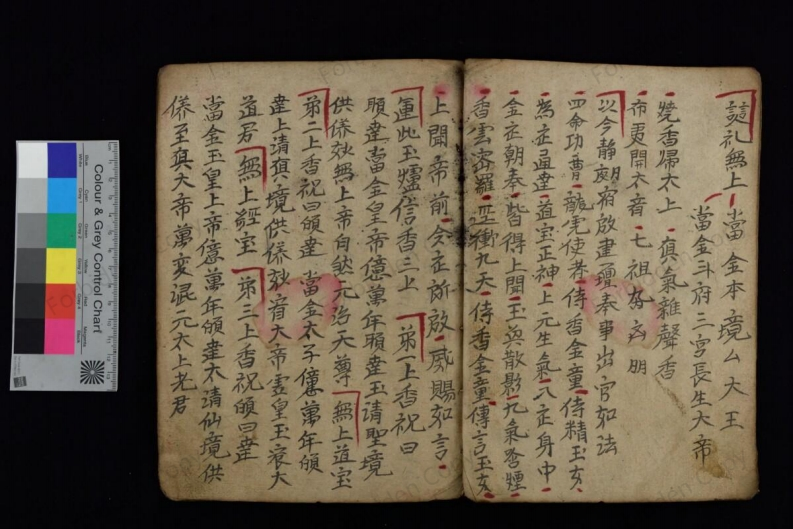 誌礼無上 當金本境厶大王
當金斗府三宮長生大帝
燒香歸太上 真氣雜聲香
七祖
以今靜宿放建壇奉事出官如法
四命功曹 龍虎使者 侍香金童 侍精玉女
為臣通達 道宝正神 上元生氣 入臣身中
金臣朝奉 皆得上聞 玉真散影 九氣吞煙
香雲密羅 逕衝九天 侍香金童 傳言玉女
上聞帝前 令臣所啟 咸賜如言
運此玉爐信香三上 第一上香祝曰
願達當金皇帝億萬年願達玉清聖境
供養妙無上帝自然元始天尊 無上道宝
第二上香祝曰願達 當金太子億萬年願
達上清真境供養妙音大帝虛皇玉宸大
道君 無上經宝 第三上香祝願曰達
當金玉皇上帝億萬年願達太清仙境供
養至真大帝萬変混元太上老君
Colour & Grey Control Chart